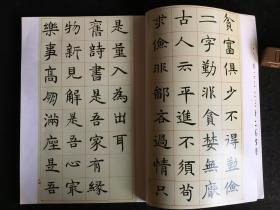 貧富俱少不得勤儉
二字勤非貪婪無厭
古人云平進不須苟
求儉非鄙吝過情只
是量入為出耳
舊詩書是吾家有緣
物新見解是吾心最
樂事高朋滿座是吾